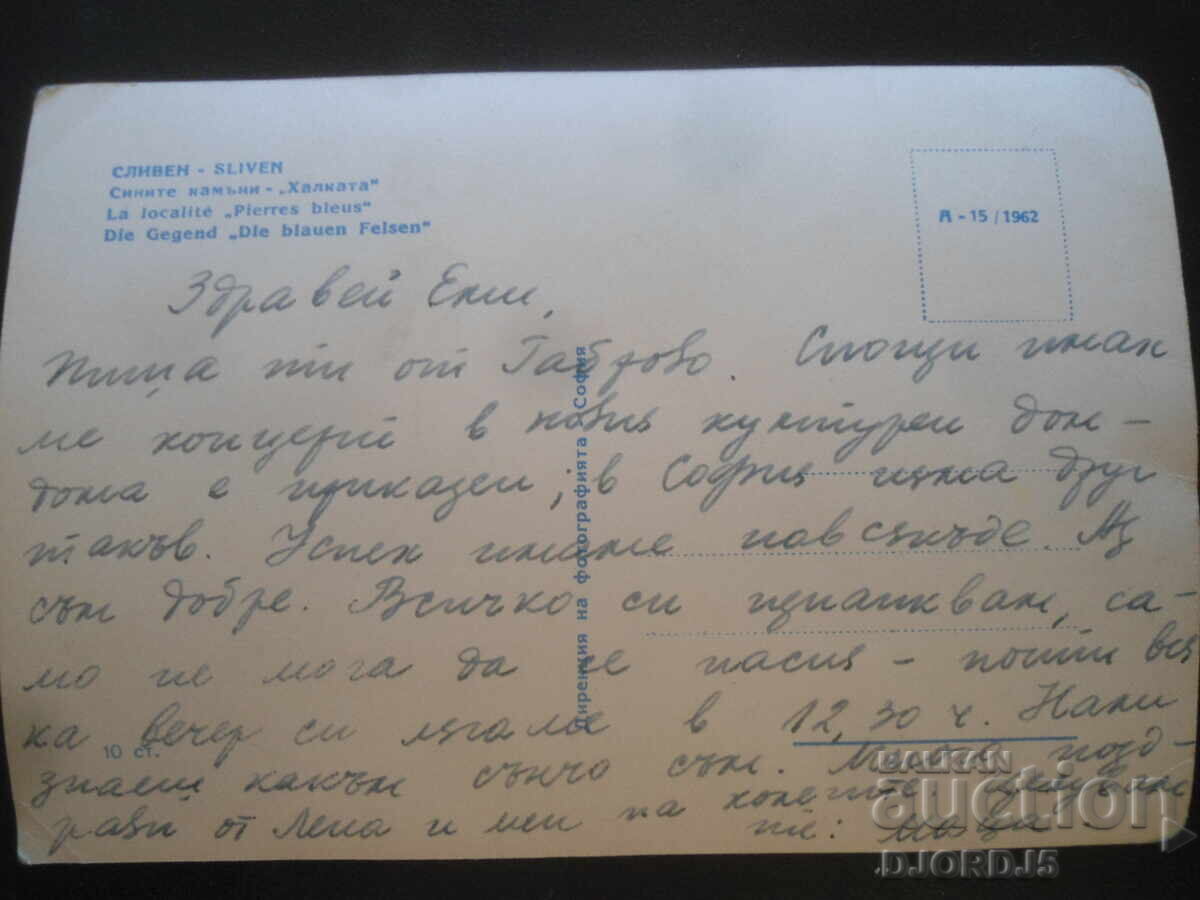 СЛИВЕН - SLIVEN
Сините камъни - „Халката"
La localité „Pierres bleus"
Die Gegend „Die blauen Felsen"
А - 15 / 1962
Здравей Ели,
Пиша ти от Габрово. Снощи имах
ме концерт в новия културен дом –
дома е приказен, в София няма друг
такъв. Успех имаме навсякъде. Аз
съм добре. Всичко си изпапквам, са-
мо не мога да се наспя – почти вся
ка вечер си лягаме в 12,30 ч. Нали
знаеш какъв сънчо съм. Много позд-
рави от Лена и мен на колегите. Целувам
те:
Дирекция на фотографията София
10 ст.
BALKAN
auction
DJORDJ5